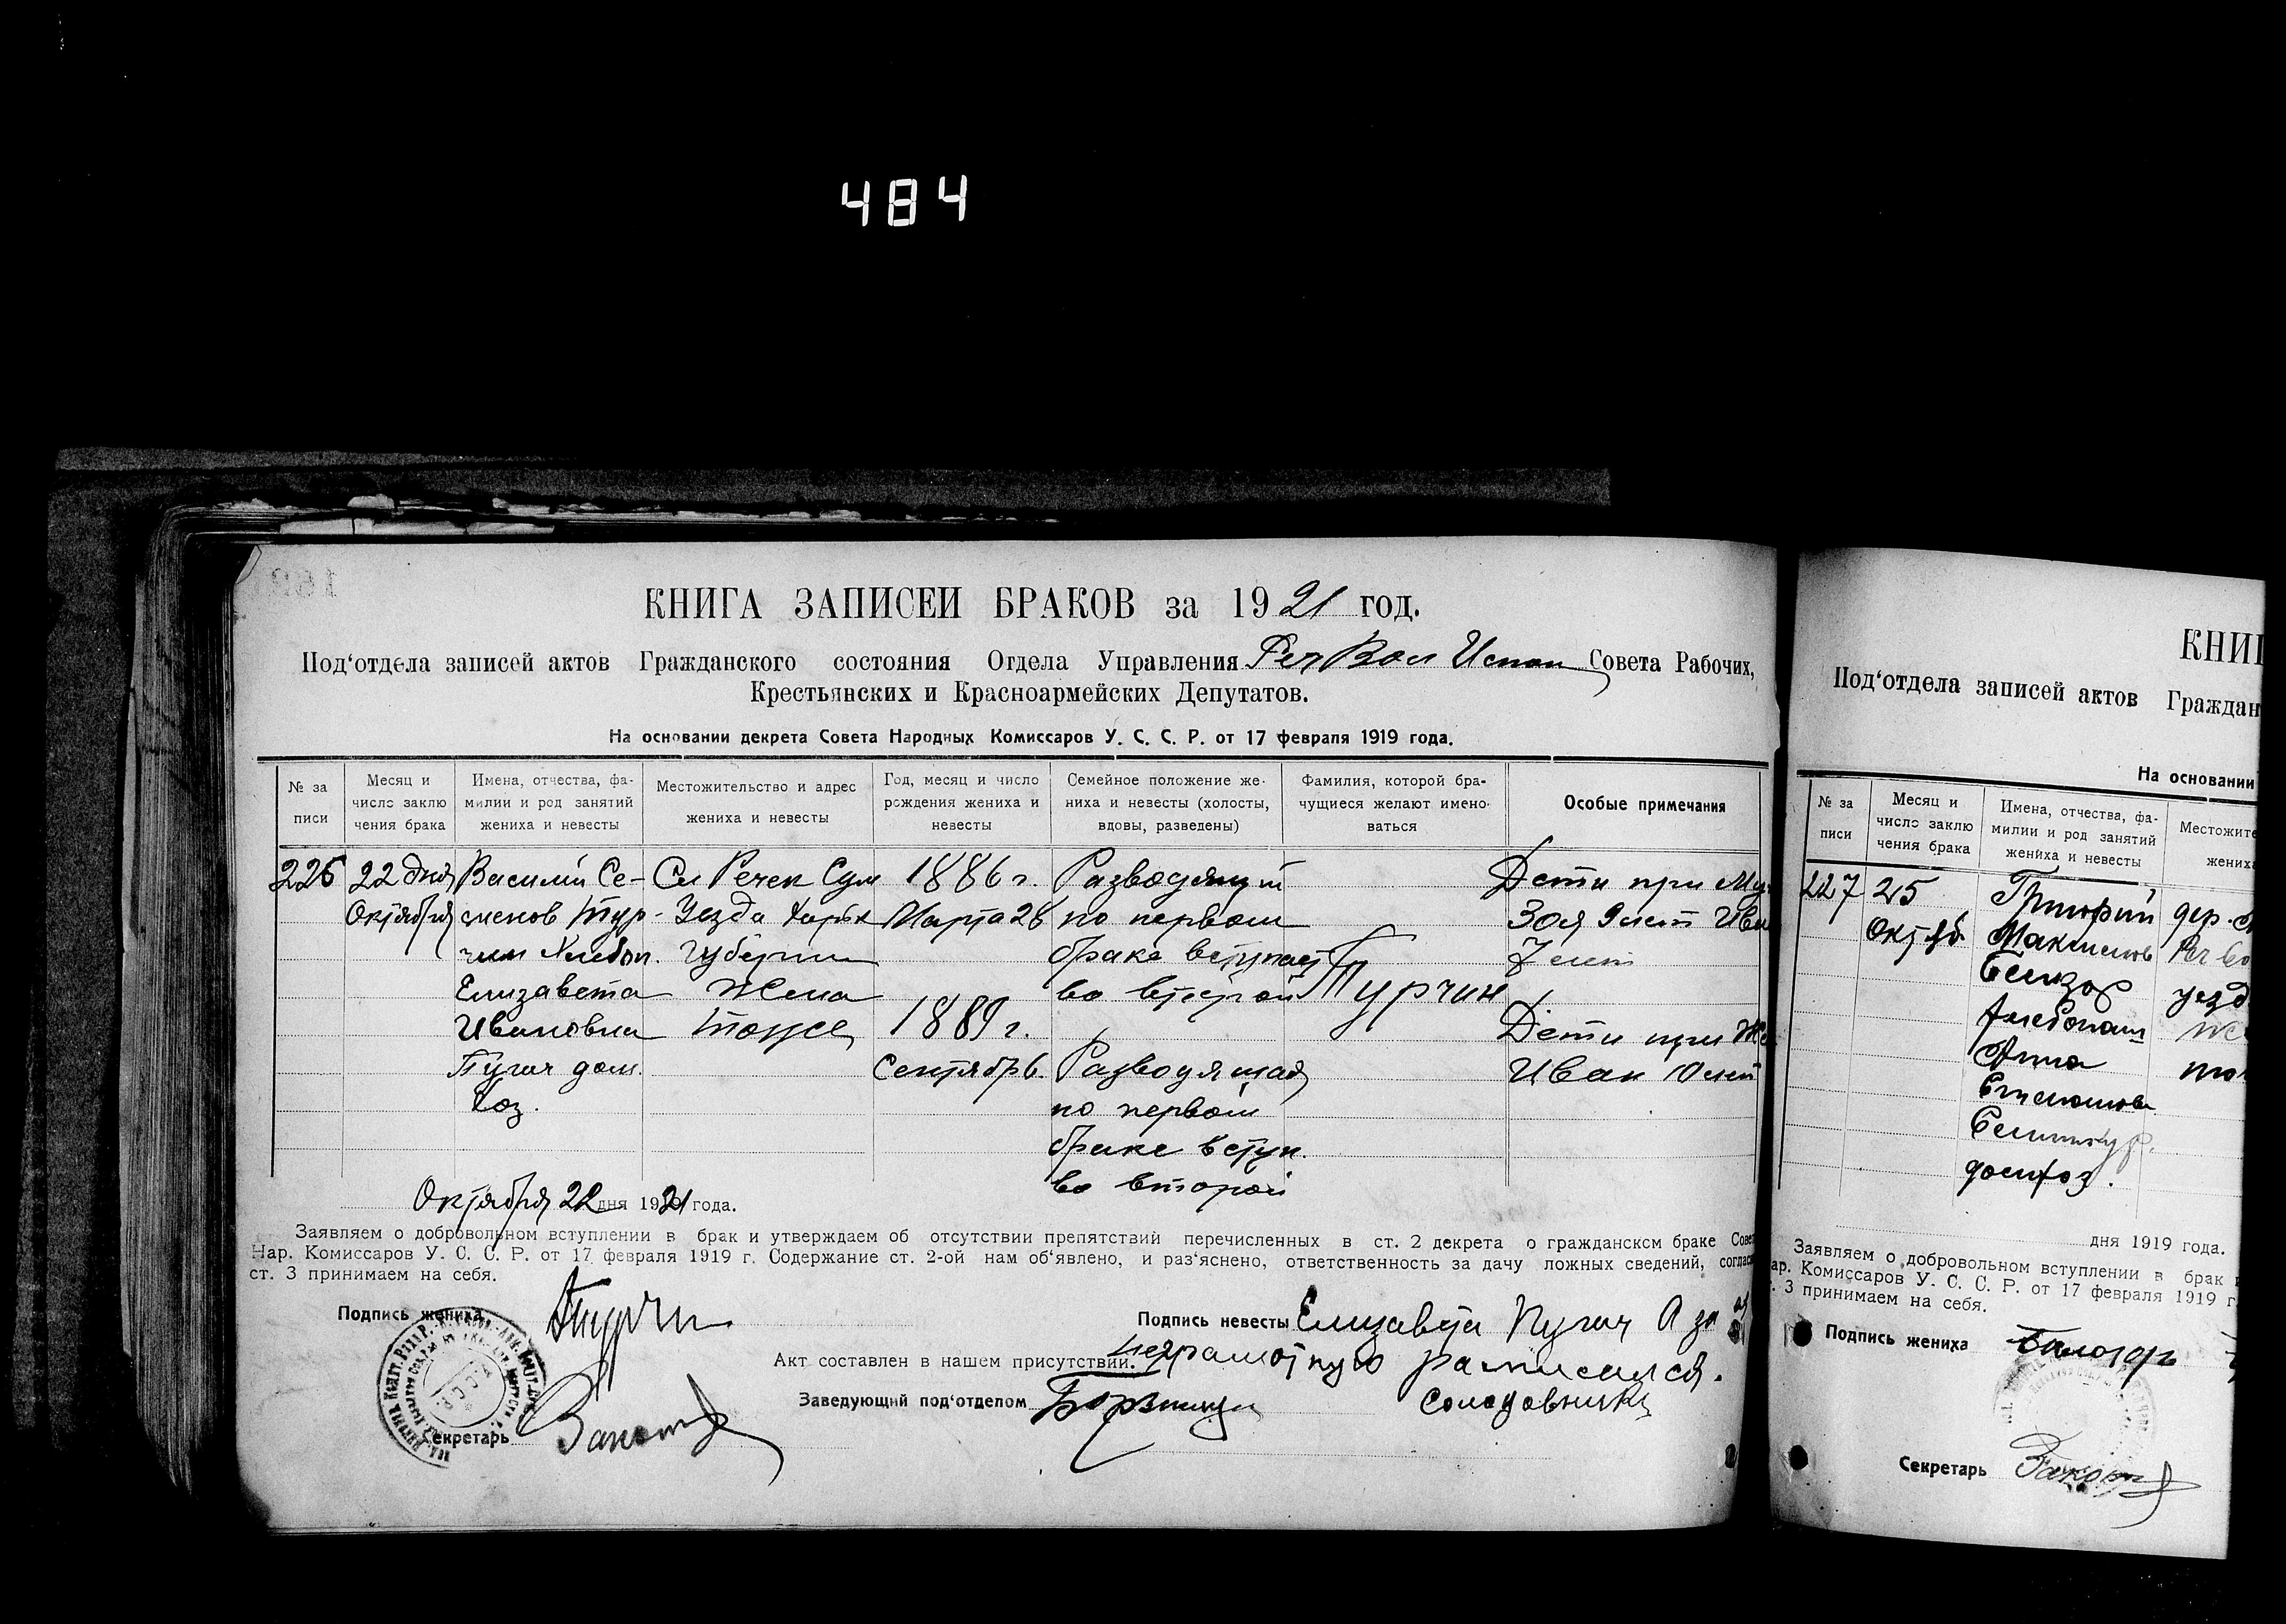 484
КНИГА ЗАПИСЕЙ БРАКОВ за 1921 год.
Под‘отдела записей актов Гражданского состояния Отдела Управления Реч Вол Испол Совета Рабочих,
Крестьянских и Красноармейских Депутатов.
На основании декрета Совета Народных Комиссаров У. С. С. Р. от 17 февраля 1919 года.
№ за писи
Месяц и число заклю чения брака
Имена, отчества, фа- милии и род занятий жениха и невесты
Местожительство и адрес жениха и невесты
Год, месяц и число рождения жениха и невесты
Семейное положение же- ниха и невесты (холосты, вдовы, разведены)
Фамилия, которой бра- чущиеся желают имено- ваться
Особые примечания
226 22 дня Василий Се- Сл Речек Сум 1886 г. Разводящий Дети при Му
Октября менов Тур- Уезда Харьк Марта 28 по первом Зоя 9 лет Ива
чин Хлебоп. Губернии браке вступает 7 лет
Елизавета Жена во второй Турчин
Ивановна тоже 1889 г. Дети при Же
Пугач дом. Сентябрь. Разводящая Иван 10 лет
хоз. по первом
браке вступ.
во второй
Октября 22 дня 1921 года.
Заявляем о добровольном вступлении в брак и утверждаем об отсутствии препятствий перечисленных в ст. 2 декрета о гражданском браке Совет
Нар. Комиссаров У. С. С. Р. от 17 февраля 1919 г. Содержание ст. 2-ой нам об‘явлено, и раз‘яснено, ответственность за дачу ложных сведений, соглас
ст. 3 принимаем на себя.
Подпись жениха Турчин
Подпись невесты Елизавета Пугач А за
неграмотную расписался.
Акт составлен в нашем присутствии.
Заведующий под‘отделом
Солодовник
Секретарь
КНИГ
Под‘отдела записей актов Граждан
На основании
№ за писи
Месяц и число заклю чения брака
Имена, отчества, фа- милии и род занятий жениха и невесты
Местожите жениха
227 25 Григорий дер.
Октяб Максимов Реч во
уезд
Хлебопаш
Анна то
домхоз.
дня 1919 года.
Заявляем о добровольном вступлении в брак и
ар. Комиссаров У. С. С. Р. от 17 февраля 1919 г.
. 3 принимаем на себя.
Подпись жениха
Секретарь